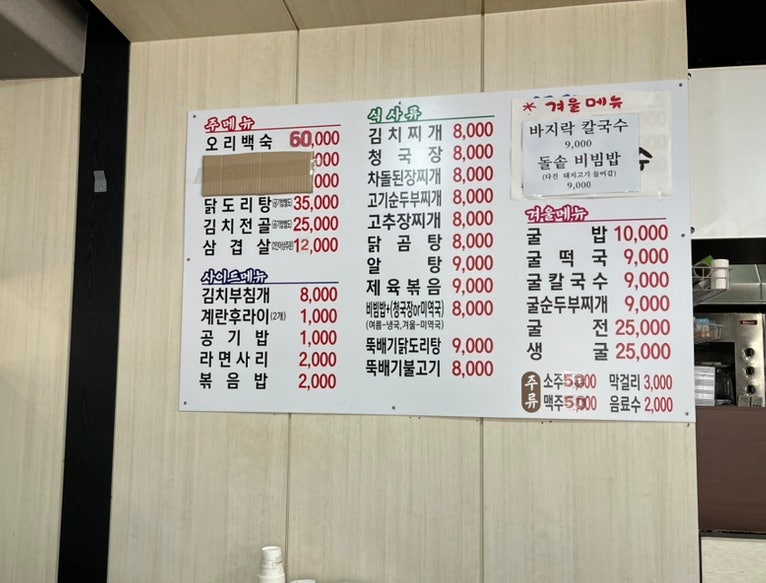 주메뉴
오리백숙 60,000
000
000
닭도리탕(공기밥별도) 35,000
김치전골(공기밥별도) 25,000
삼겹살(2인이상주문) 12,000
사이드메뉴
김치부침개 8,000
계란후라이(2개) 1,000
공기밥 1,000
라면사리 2,000
볶음밥 2,000
식사류
김치찌개 8,000
청국장 8,000
차돌된장찌개 8,000
고기순두부찌개 8,000
고추장찌개 8,000
닭곰탕 8,000
알탕 9,000
제육볶음 9,000
비빔밥+(청국장or미역국) 8,000
(여름-냉국,겨울-미역국)
뚝배기닭도리탕 9,000
뚝배기불고기 8,000
* 겨울메뉴
바지락 칼국수
9,000
돌솥 비빔밥
(다진 돼지고기 들어감)
9,000
수
겨울메뉴
굴밥 10,000
굴떡국 9,000
굴칼국수 9,000
굴순두부찌개 9,000
굴전 25,000
생굴 25,000
주류
소주 5,000 막걸리 3,000
맥주 5,000 음료수 2,000